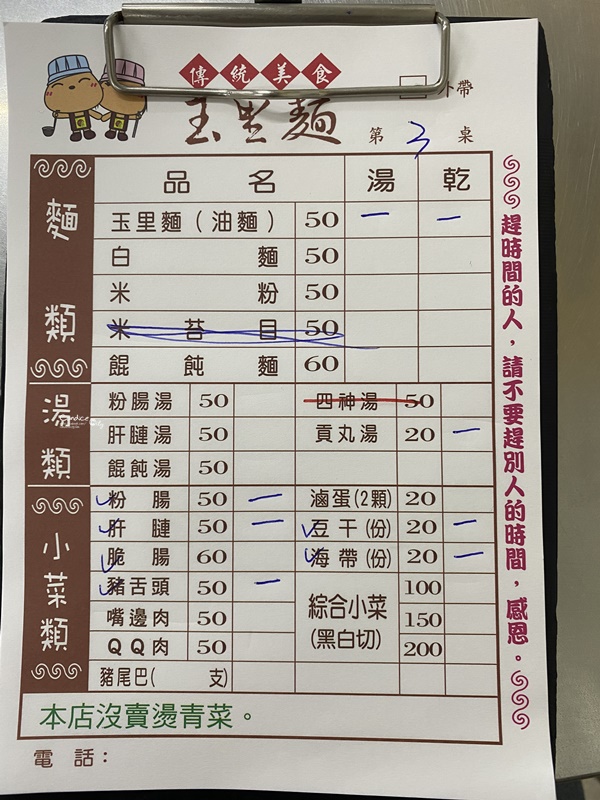 傳統美食
外帶
玉里麵
第 3 桌
品名 湯 乾
麵類
玉里麵(油麵) 50 一 一
白麵 50
米粉 50
米苔目 50
餛飩麵 60
湯類
粉腸湯 50 四神湯 50
肝膶湯 50 貢丸湯 20 一
餛飩湯 50
小菜類
粉腸 50 一 滷蛋(2顆) 20
肝膶 50 一 豆干(份) 20 一
脆腸 60 海帶(份) 20 一
豬舌頭 50 一 綜合小菜(黑白切) 100
嘴邊肉 50 150
QQ肉 50 200
豬尾巴( 支)
本店沒賣燙青菜。
電話:
趕時間的人,請不要趕別人的時間,感恩。